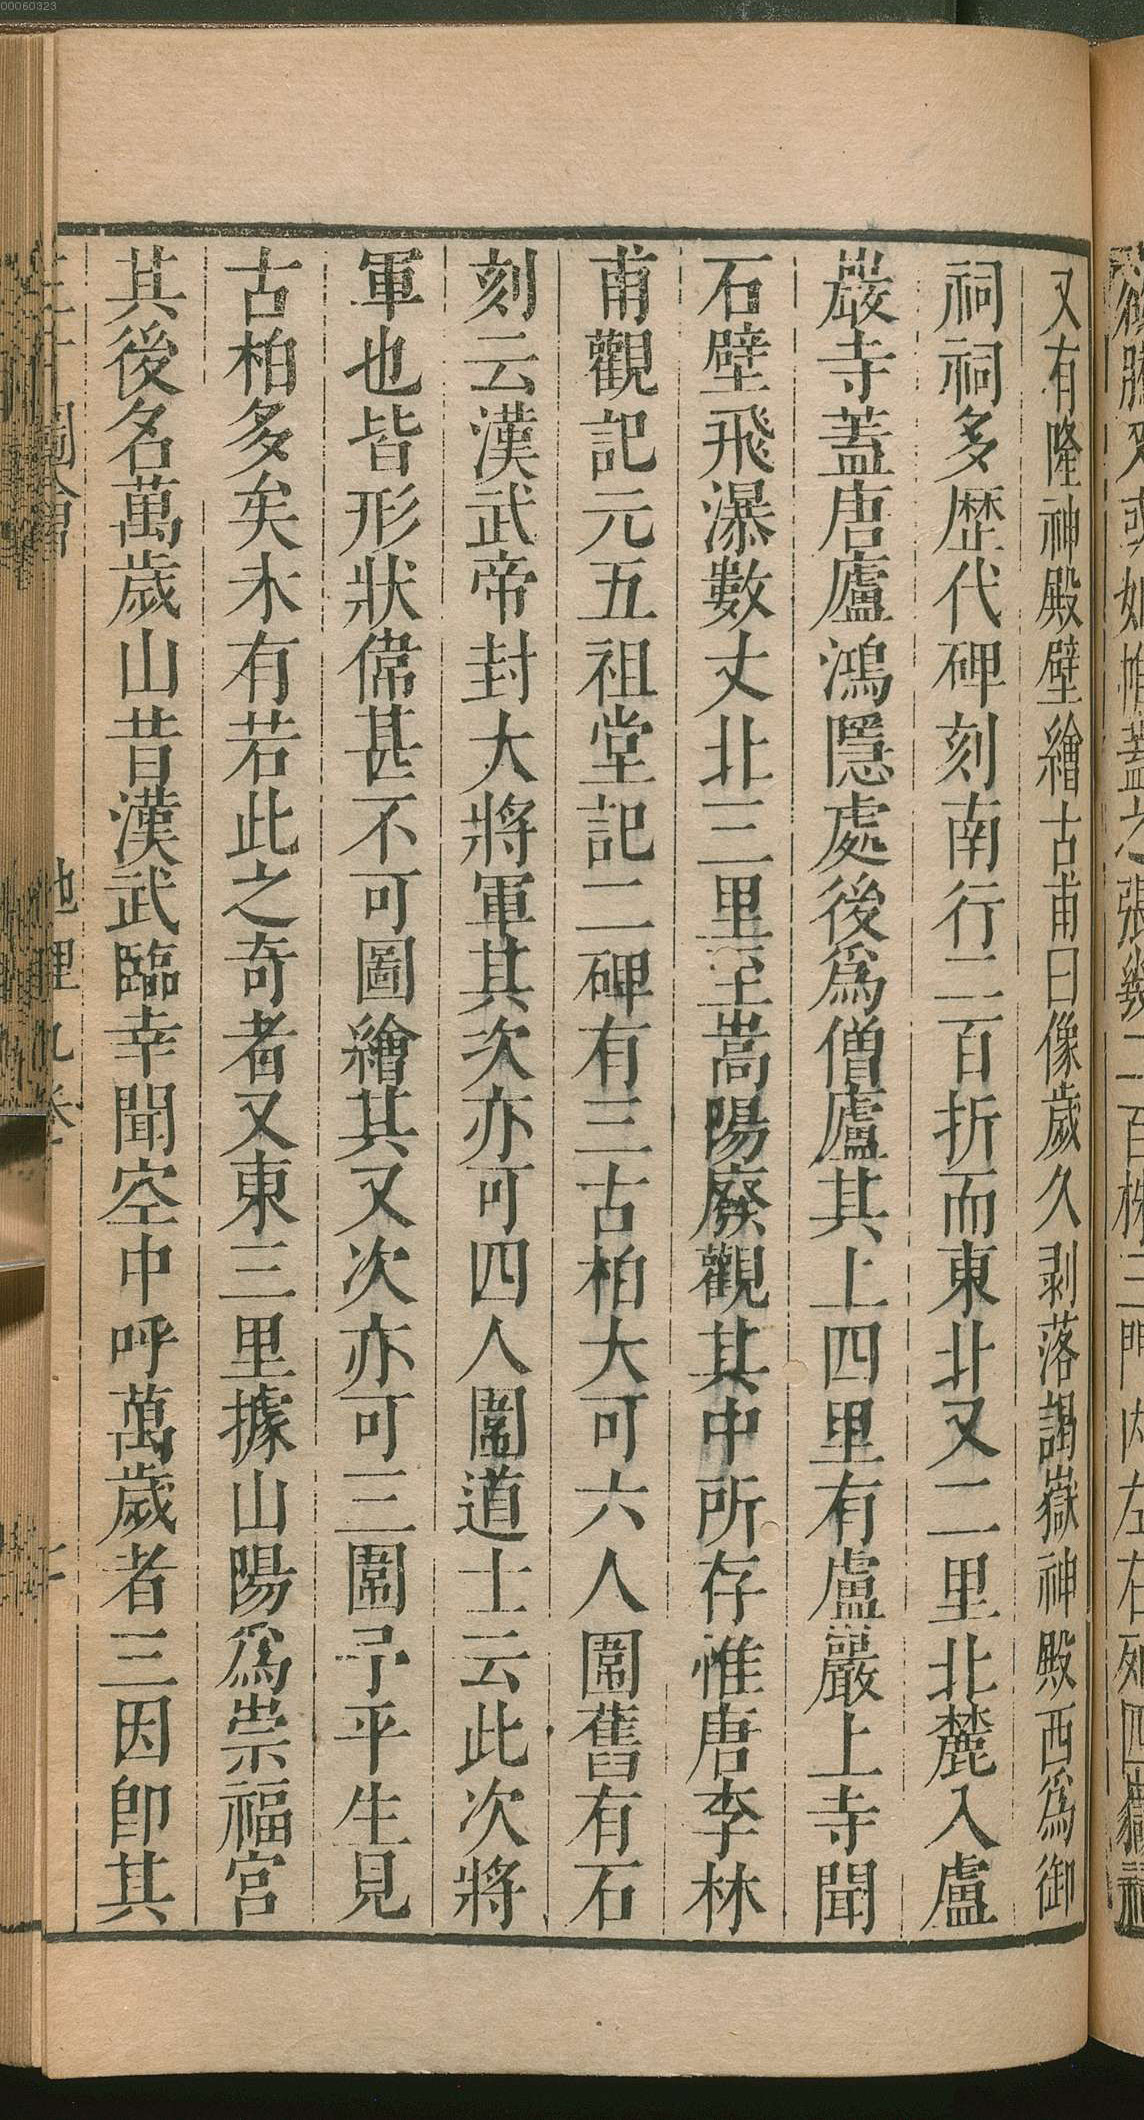 00060323
又有隆神殿壁繪古甫曰像歲久剥落謁嶽神殿西爲御
祠祠多歴代碑刻南行二百折而東北又二里北麓入盧
巖寺蓋唐廬鴻隱處後爲僧廬其上四里有盧巖上寺聞
石壁飛瀑數丈北三里至嵩陽廢觀其中所存惟唐李林
甫觀記元五祖堂記二碑有三古柏大可六人圍舊有石
刻云漢武帝封大將軍其次亦可四人圍道士云此次將
軍也皆形狀偉甚不可圖繪其又次亦可三圍予平生見
古柏多矣未有若此之奇者又東三里據山陽爲崇福宮
其後名萬歲山昔漢武臨幸聞空中呼萬歲者三因卽其
地理九卷